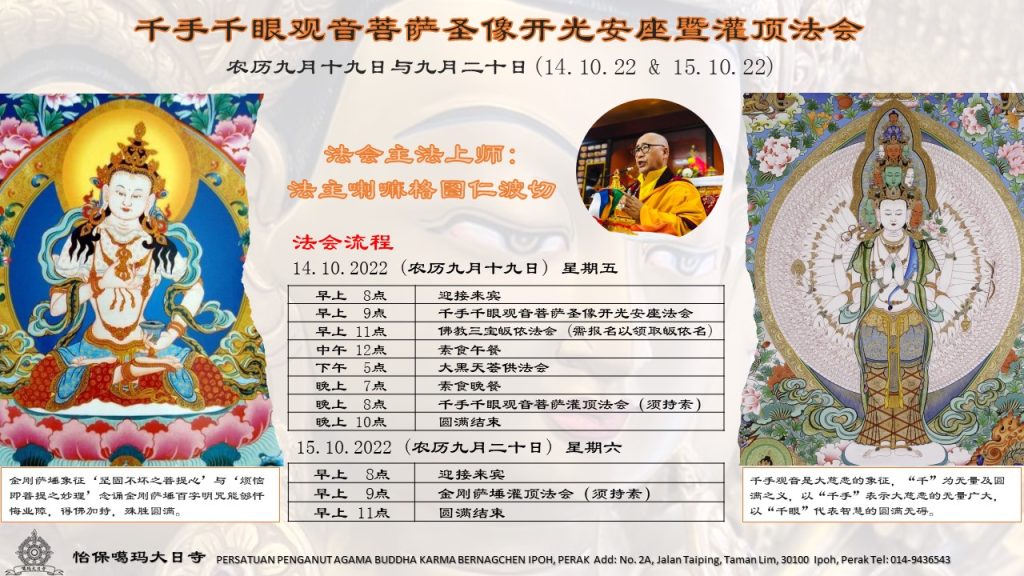 千手千眼观音菩萨圣像开光安座暨灌顶法会
农历九月十九日与九月二十日(14.10.22 & 15.10.22)
法会主法上师：
法主喇嘛格图仁波切
法会流程
14.10.2022 (农历九月十九日) 星期五
早上 8点 迎接来宾
早上 9点 千手千眼观音菩萨圣像开光安座法会
早上 11点 佛教三宝皈依法会 (需报名以领取皈依名)
中午 12点 素食午餐
下午 5点 大黑天荟供法会
晚上 7点 素食晚餐
晚上 8点 千手千眼观音菩萨灌顶法会 (须持素)
晚上 10点 圆满结束
15.10.2022 (农历九月二十日) 星期六
早上 8点 迎接来宾
早上 9点 金刚萨埵灌顶法会 (须持素)
早上 11点 圆满结束
金刚萨埵象征‘坚固不坏之菩提心’与‘烦恼
即菩提之妙理’念诵金刚萨埵百字明咒能够忏
悔业障，得佛加持，殊胜圆满。
千手观音是大慈悲的象征，“千”为无量及圆
满之义，以“千手”表示大慈悲的无量广大，
以“千眼”代表智慧的圆满无碍。
怡保噶玛大日寺 PERSATUAN PENGANUT AGAMA BUDDHA KARMA BERNAGCHEN IPOH, PERAK Add: No. 2A, Jalan Taiping, Taman Lim, 30100 Ipoh, Perak Tel: 014-9436543